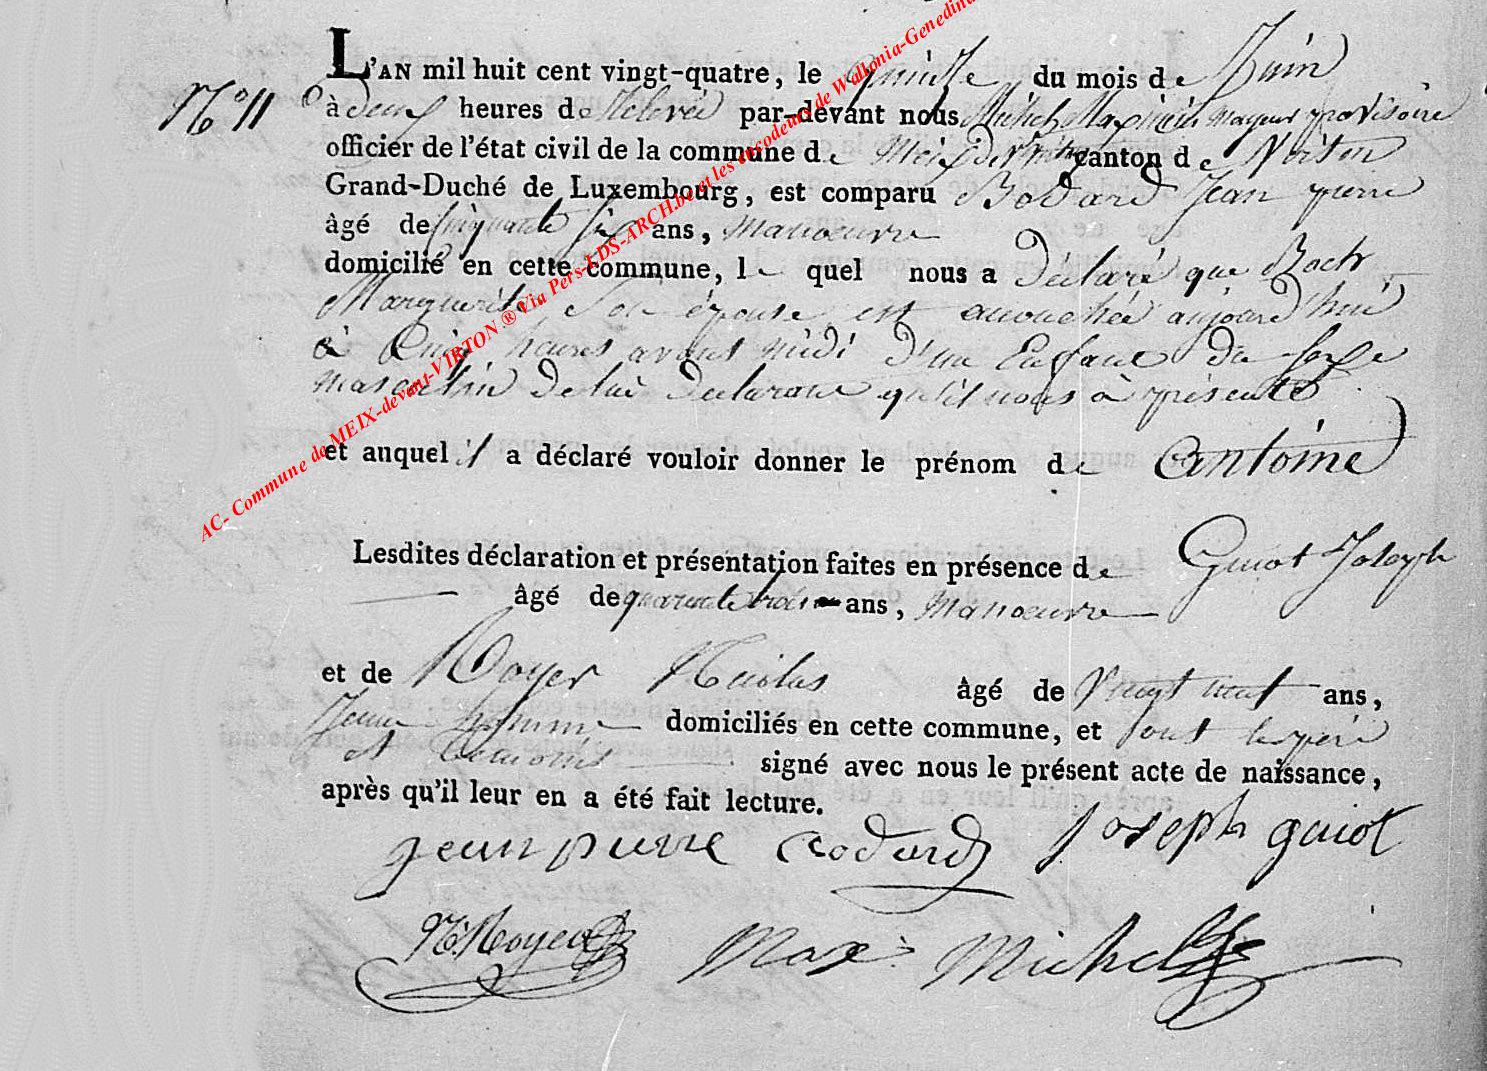 N° 11
L'AN mil huit cent vingt-quatre, le quinze du mois de Juin
à deux heures de relevée par-devant nous Michel Maximin mayeur provisoire
officier de l'état civil de la commune de Meix devt Virton canton de Virton
Grand-Duché de Luxembourg, est comparu Bodard Jean pierre
âgé de cinquante six ans, Manoeuvre
domicilié en cette commune, le quel nous a déclaré que
Marguerite Son épouse est accouchée aujourd'hui
à Cinq heures avant midi d'un Enfant du sexe
masculin de lui declarant qu'il nous à présenté
et auquel il a déclaré vouloir donner le prénom de antoine
Lesdites déclaration et présentation faites en présence de Guiot Joseph
âgé de quarante trois ans, Manoeuvre
et de Noyer Nicolas âgé de Vingt neuf ans,
Jeune homme domiciliés en cette commune, et ont le père
et temoins signé avec nous le présent acte de naissance,
après qu'il leur en a été fait lecture.
jean pierre bodard joseph guiot
N. Noyer Max: Michel
AC- Commune de MEIX-devant-VIRTON ® Via Pers-LDS-ARCH.be et les encodeurs de Wallonia-Genedina